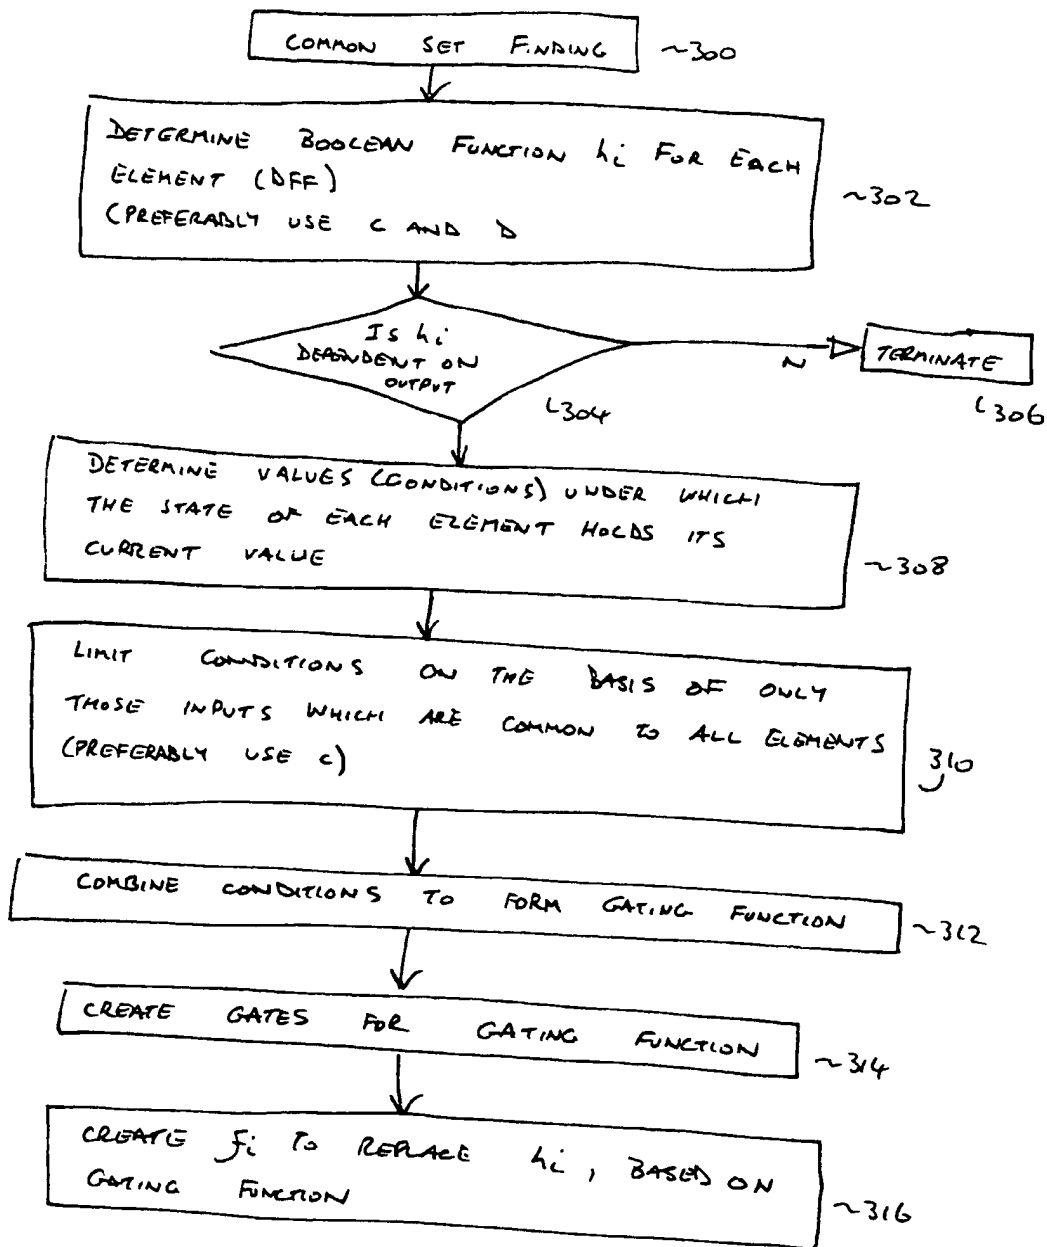 COMMON SET FINDING ~300
DETERMINE BOOLEAN FUNCTION hi FOR EACH
ELEMENT (DFF)
(PREFERABLY USE C AND D
~302
Is hi
DEPENDENT ON
OUTPUT
304
N
TERMINATE
306
DETERMINE VALUES (CONDITIONS) UNDER WHICH
THE STATE OF EACH ELEMENT HOLDS ITS
CURRENT VALUE
~308
LIMIT CONDITIONS ON THE BASIS OF ONLY
THOSE INPUTS WHICH ARE COMMON TO ALL ELEMENTS
(PREFERABLY USE C)
310
COMBINE CONDITIONS TO FORM GATING FUNCTION
~312
CREATE GATES FOR GATING FUNCTION
~314
CREATE fi TO REPLACE hi, BASED ON
GATING FUNCTION
~316